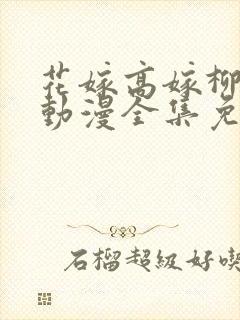 花嫁高嫁柳
動漫全集免
石榴超級好喫